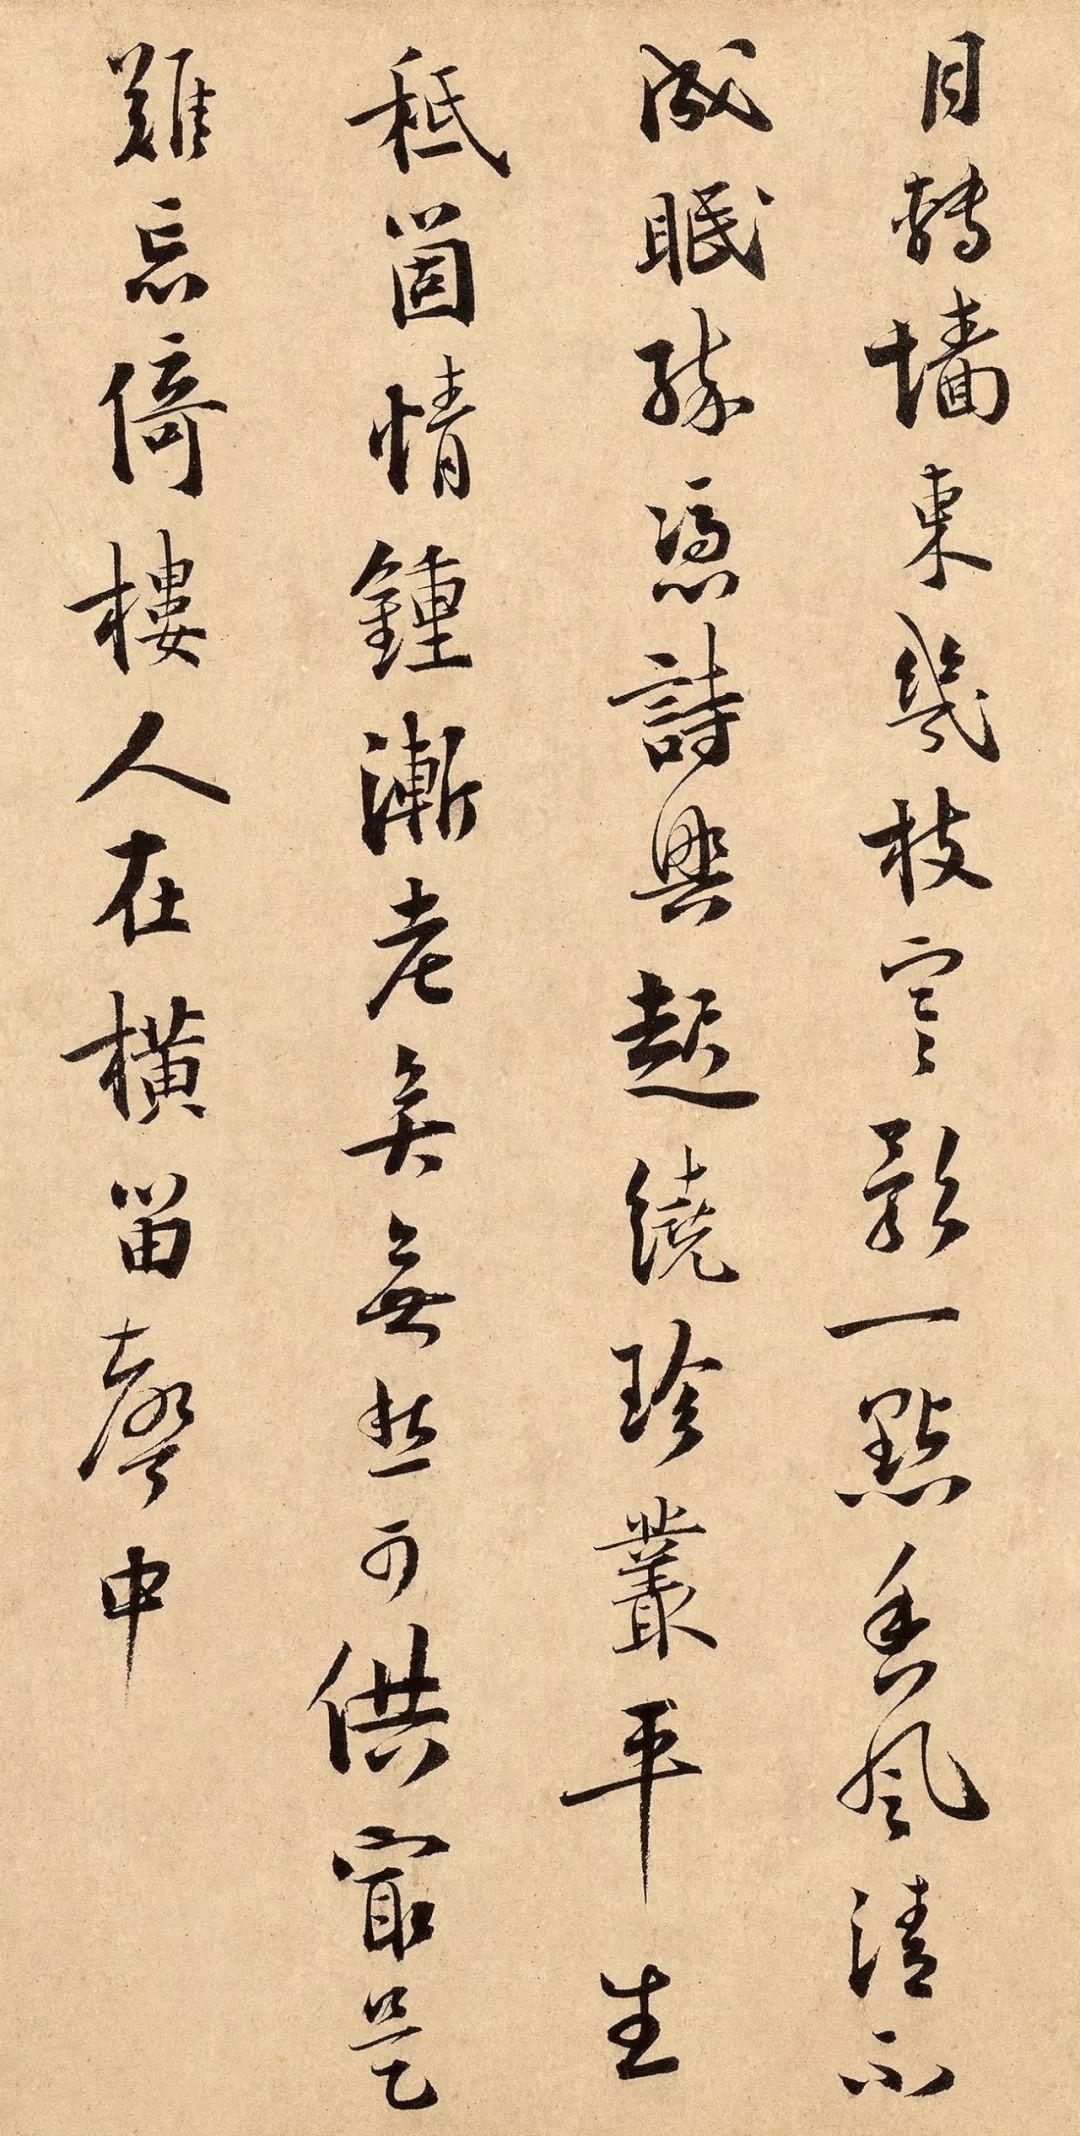 月轉墻東幾枝寒影一點香風清不
成眠醉憑詩興起繞珍叢平生
秪箇情鍾漸老矣無愁可供最是
難忘倚樓人在橫笛聲中